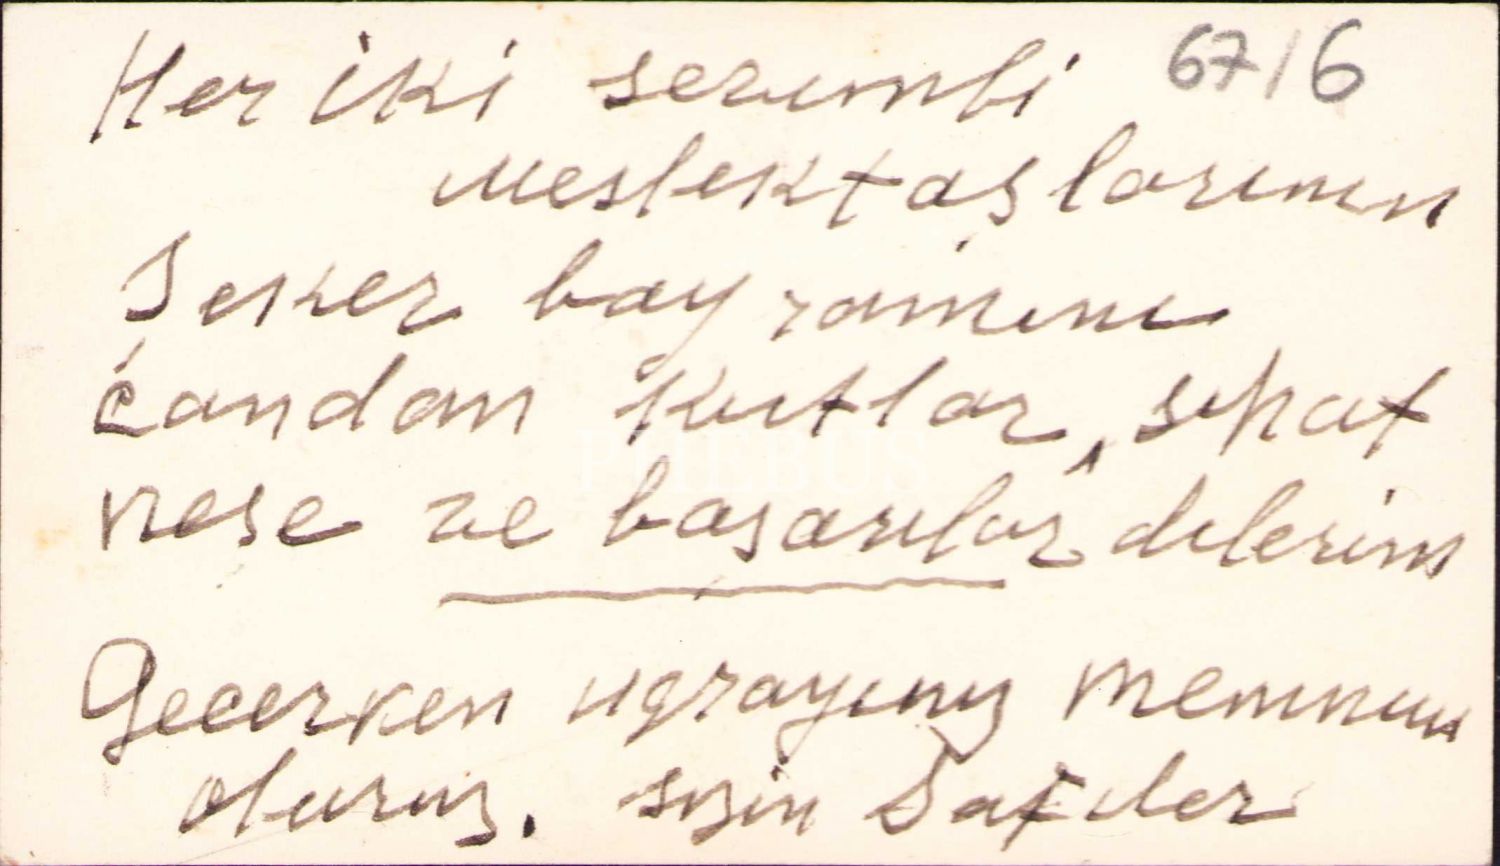 Her iki sevimli 67/6
meslektaşlarımın
Şeker bayramını
candan kutlar, sıhat
neşe ve başarılar dilerim
Geçerken uğrayınız memnun
oluruz. sizin
PHEBUS